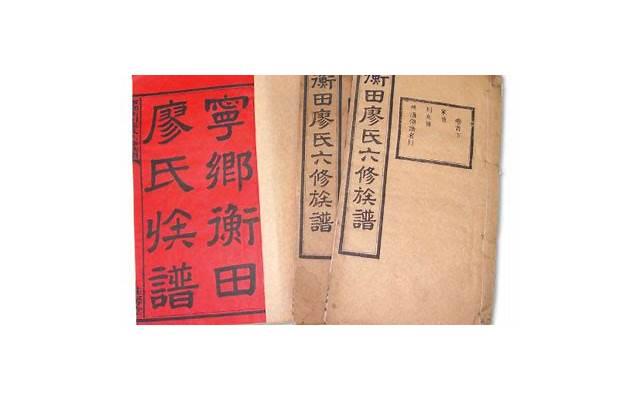 寧鄉衡田
廖氏族譜
衡田廖氏六修族譜
衡田廖氏六修族譜
卷首下